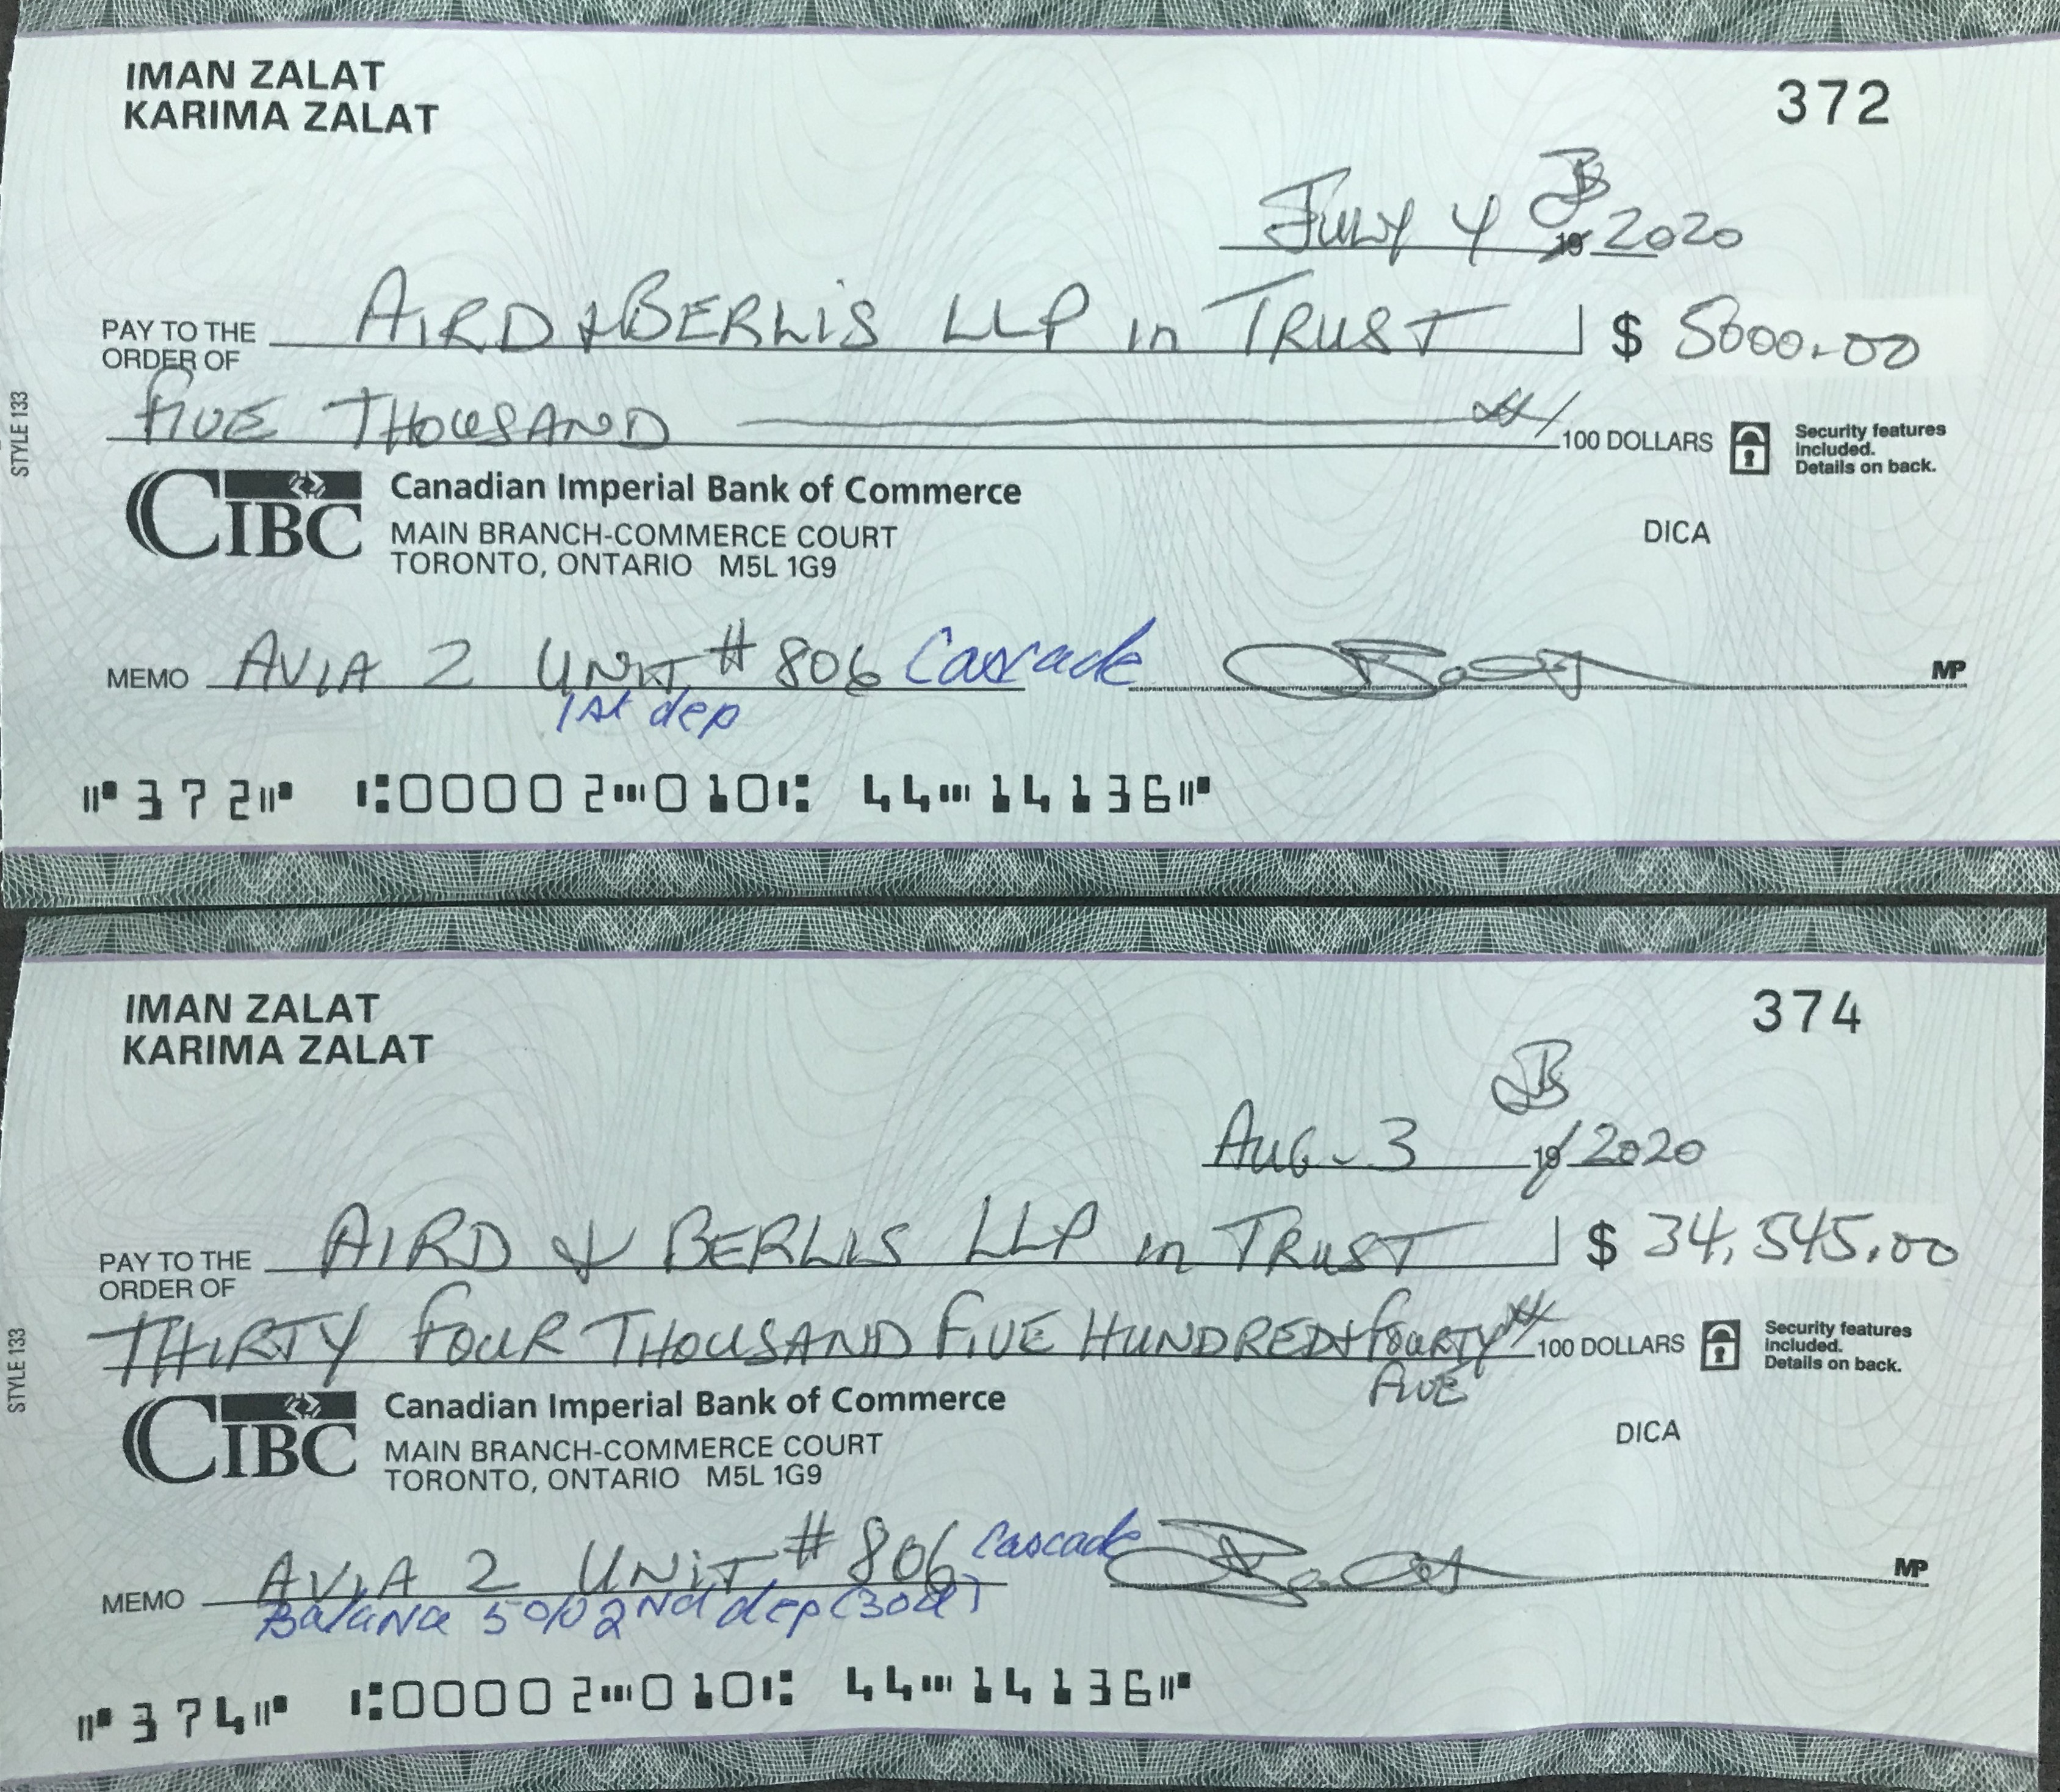 IMAN ZALAT
KARIMA ZALAT
372
JULY 4 19 2020
PAY TO THE ORDER OF AIRD & BERLIS LLP in TRUST $ 5000.00
FIVE THOUSAND /100 DOLLARS
Security features included. Details on back.
STYLE 133
CIBC
Canadian Imperial Bank of Commerce
MAIN BRANCH-COMMERCE COURT
TORONTO, ONTARIO M5L 1G9
DICA
MEMO AVIA 2 UNIT #806 Cascade MP
1st dep
⑈372⑈ ⑆00002⑉010⑆ 44⑉14136⑈
IMAN ZALAT
KARIMA ZALAT
374
AUG 3 19 2020
PAY TO THE ORDER OF AIRD & BERLIS LLP in TRUST $ 34,545.00
THIRTY FOUR THOUSAND FIVE HUNDRED & FOURTY /100 DOLLARS
FIVE
Security features included. Details on back.
STYLE 133
CIBC
Canadian Imperial Bank of Commerce
MAIN BRANCH-COMMERCE COURT
TORONTO, ONTARIO M5L 1G9
DICA
MEMO AVIA 2 UNIT #806 Cascade MP
Balance 5% 2Nd dep (30d)
⑈374⑈ ⑆00002⑉010⑆ 44⑉14136⑈